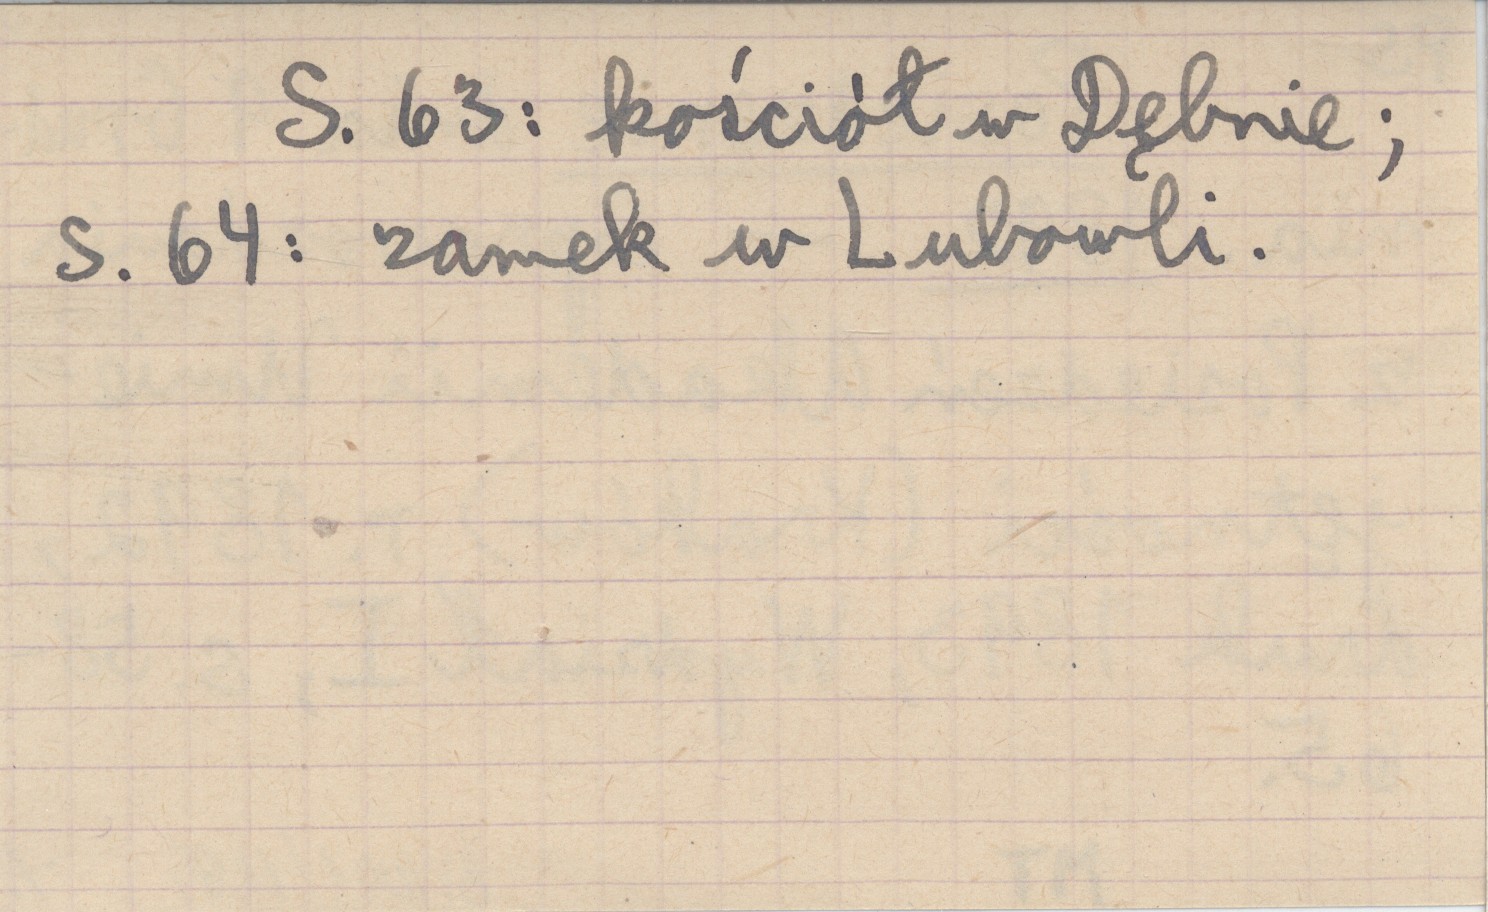 S. 63: kościół w Dębnie;
s. 64: zamek w Lubowli.